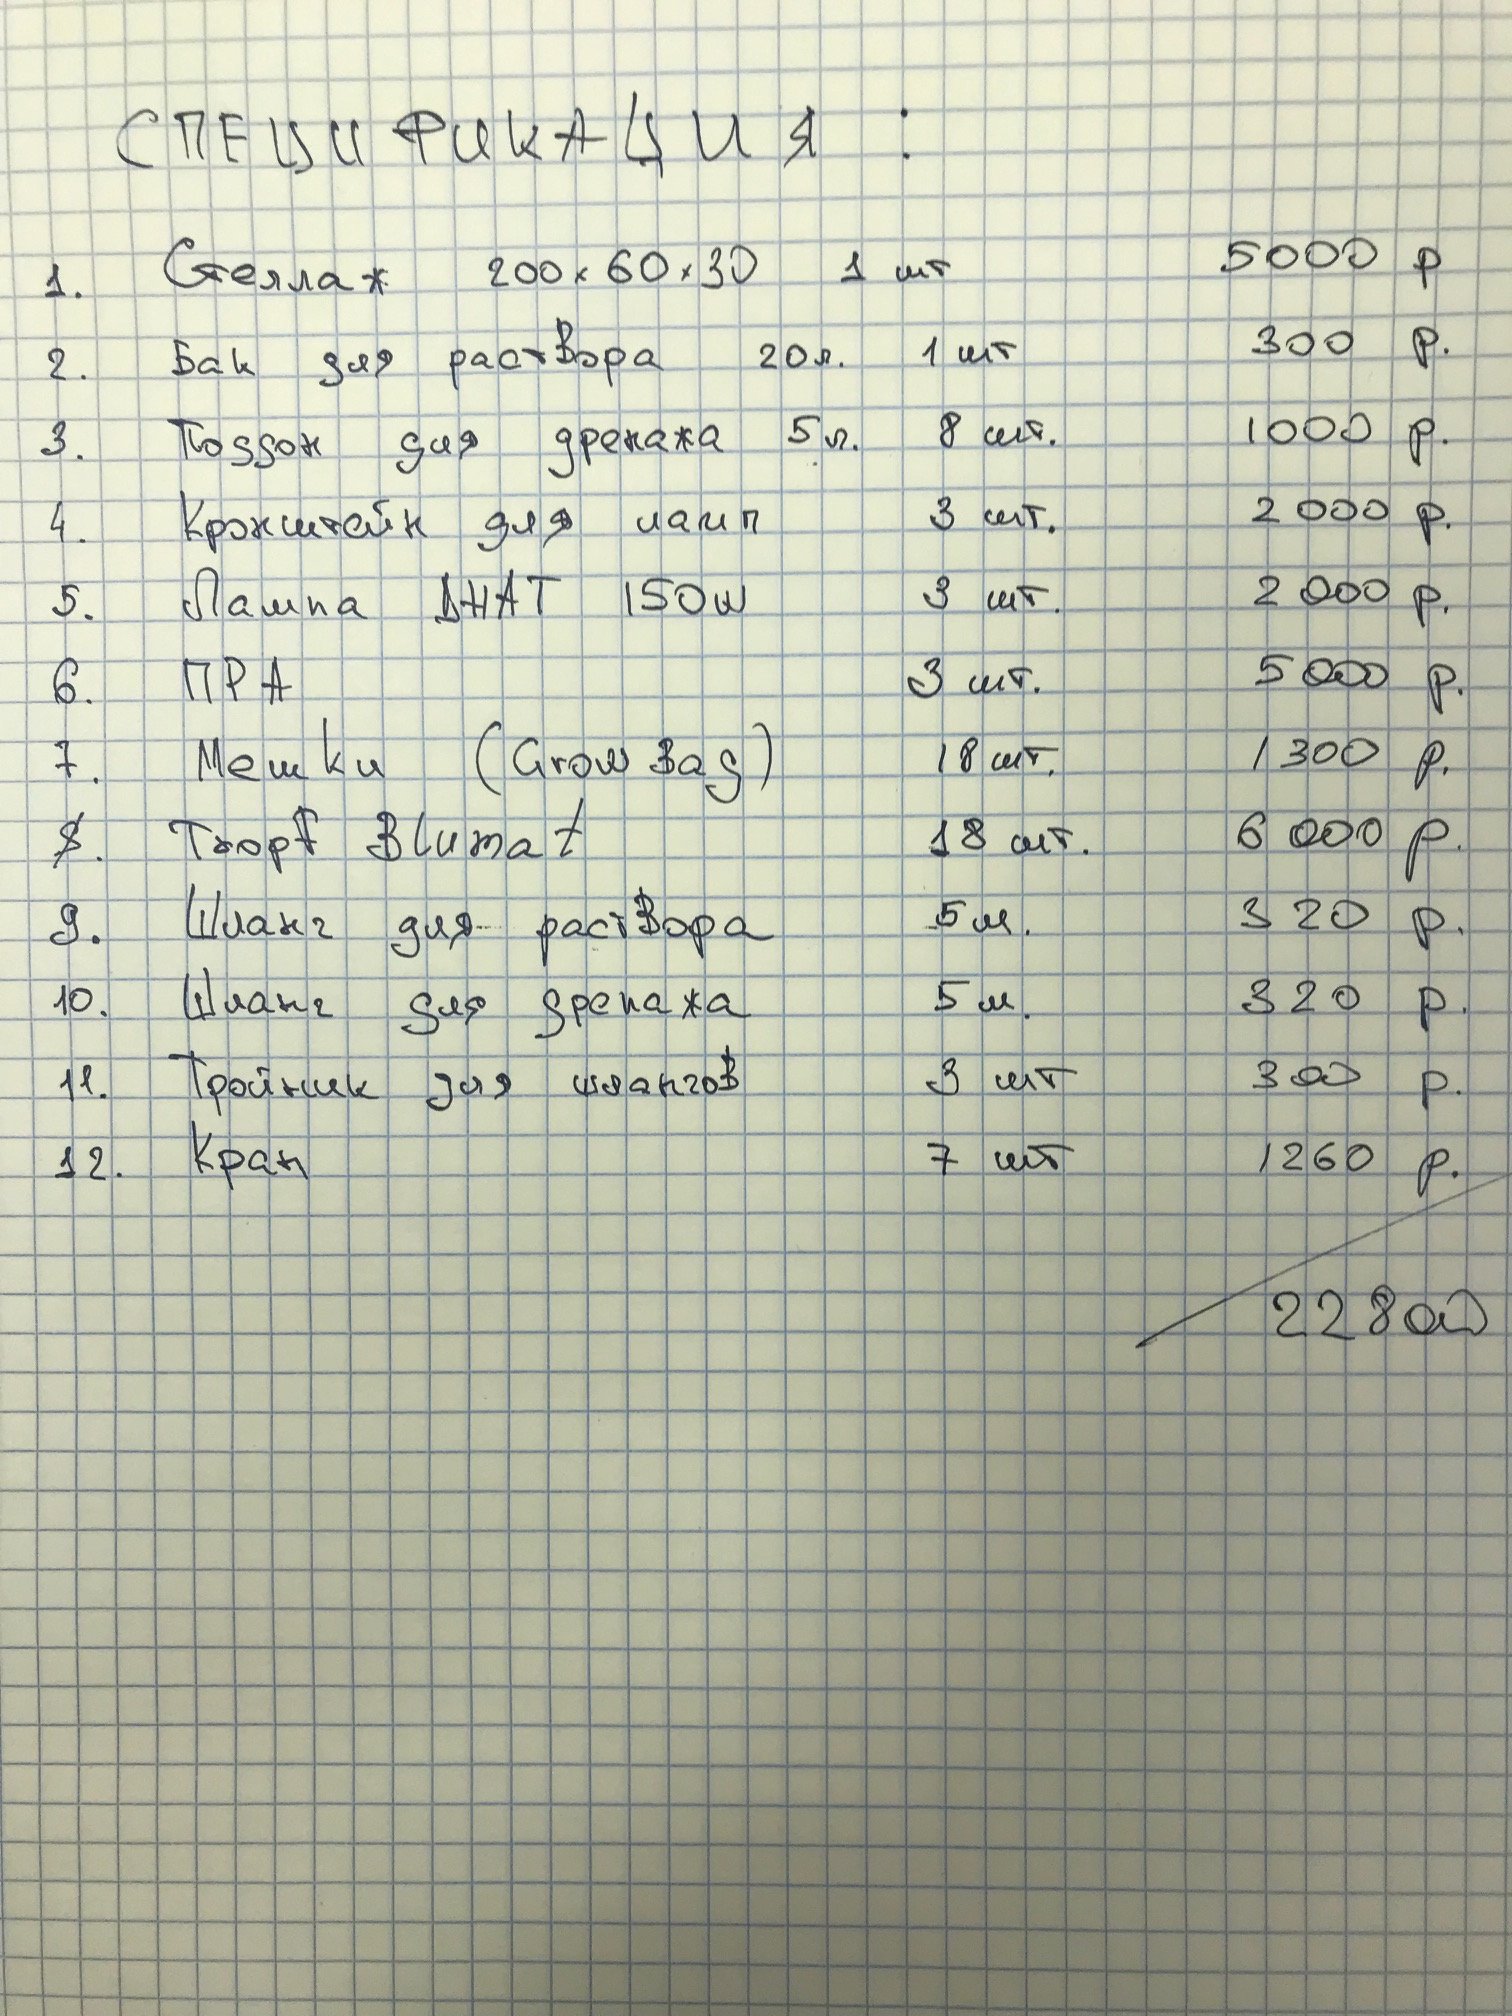 СПЕЦИФИКАЦИЯ :
1. Стеллаж 200x60x30 1 шт 5000 р
2. Бак для раствора 20л. 1 шт 300 р.
3. Поддон для дренажа 5л. 8 шт. 1000 р.
4. Кронштейн для ламп 3 шт. 2000 р.
5. Лампа ДНАТ 150w 3 шт. 2000 р.
6. ПРА 3 шт. 5000 р.
7. Мешки (Grow Bag) 18 шт. 1300 р.
8. Tropf Blumat 18 шт. 6000 р.
9. Шланг для раствора 5м. 320 р.
10. Шланг для дренажа 5м. 320 р.
11. Тройник для шлангов 3 шт 300 р.
12. Кран 7 шт 1260 р.
22800